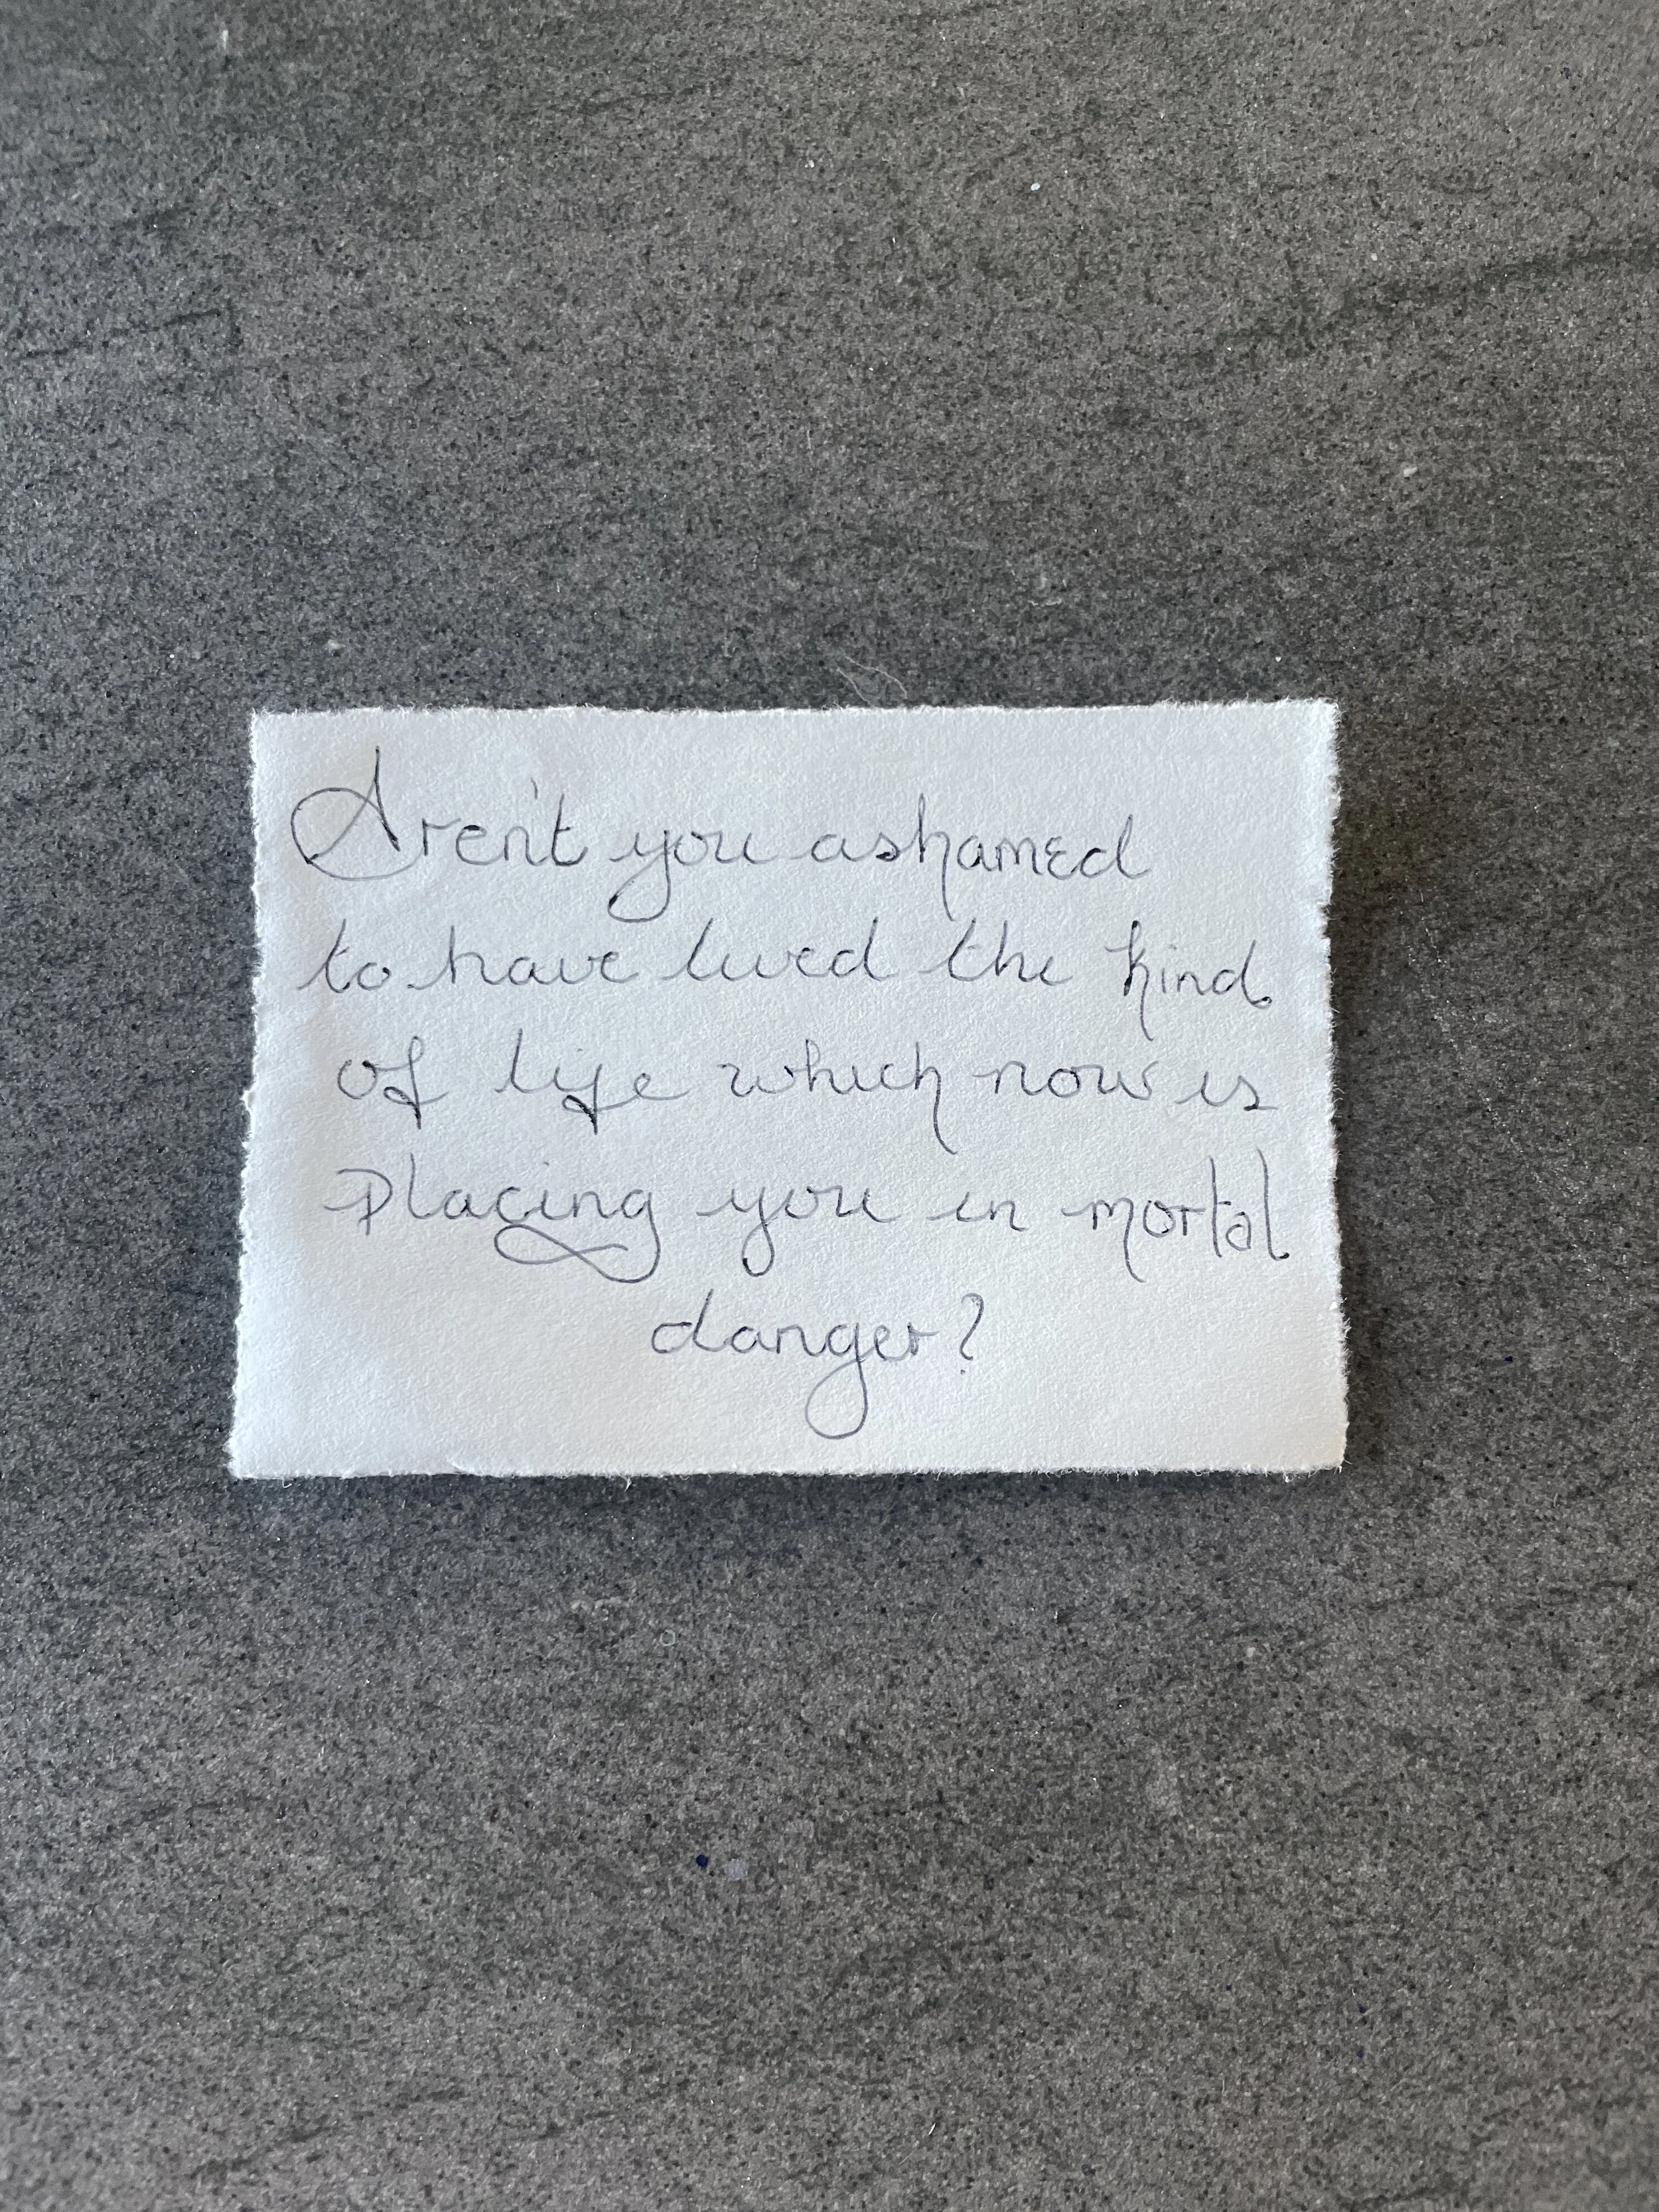 Aren't you ashamed
to have lived the kind
of life which now is
placing you in mortal
danger?